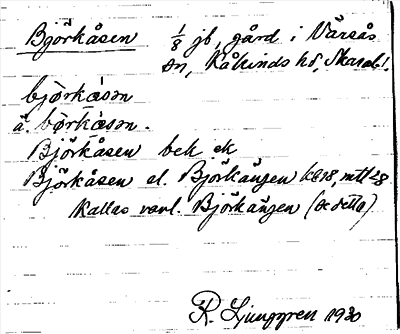 Björkåsen 1/8 jb, gård i Värsås
sn, Kåkinds hd, Skarab.l.
bjö̀rkåsən
ä. bö̀rkåsən.
Björkåsen bek ek
Björkåsen el. Björkängen
Kallas vanl. Björkängen (se detta)
R. Ljunggren 1930